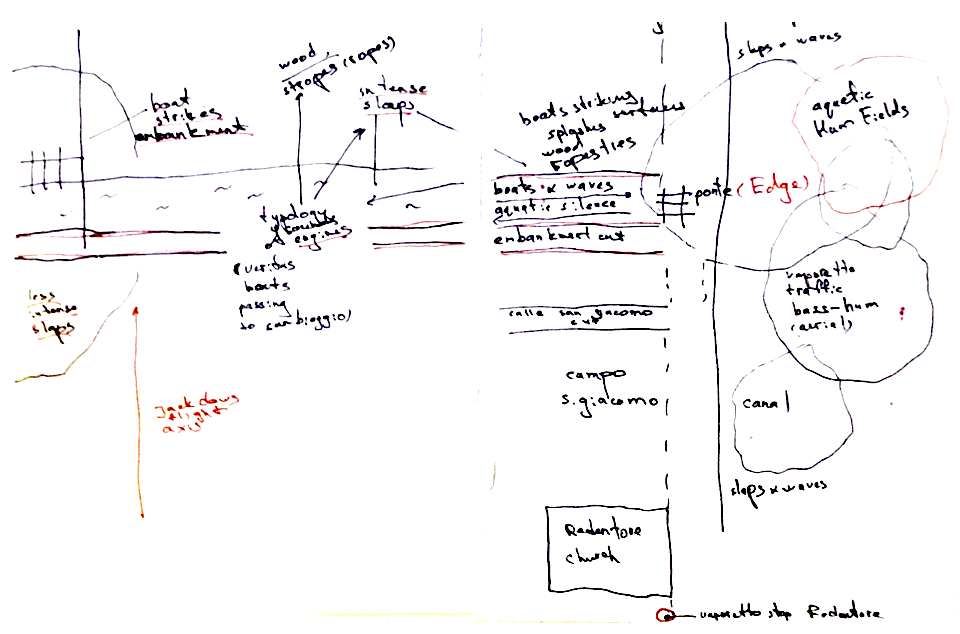 boat
strikes
embankment
wood
stropes (ropes)
intense
slaps
typology
of sounds
of engines
(various
boats
passing
to san biaggio)
less
intense
slaps
Jackdaws
flight
axis
boats striking
splashes surfaces
wood
boats x waves
aquatic silence
embankment cut
ponte (Edge)
slaps x waves
aquatic
Hum Fields
vaporetto
traffic
bass-hum
(aerial)
!
calla san giacomo
cut
campo
s.giacomo
canal
slaps x waves
Redentore
church
vaporetto stop Redentore